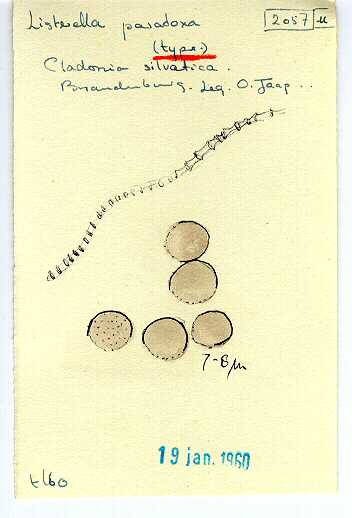 Listerella paradoxa
2057 M
(type)
Cladonia silvatica.
Brandenburg. Leg. O. Jaap..
7-8µ
19 jan. 1960
t/60